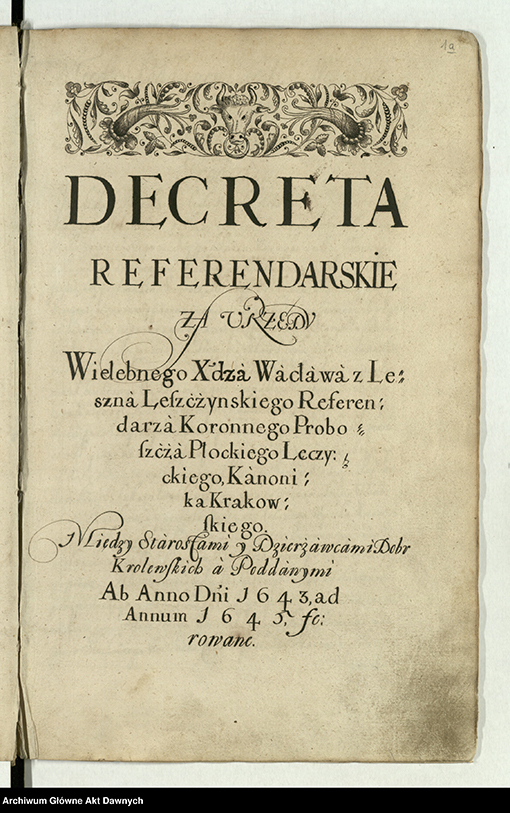 1a
DECRETA
REFERENDARSKIE
ZA URZĘDU
Wielebnego Xdzà Wàcłàwà z Le:
sznà Leszczynskiego Referen:
darzà Koronnego Probo:
szczà Płockiego Łeczy:
ckiego, Kànoni:
ka Krakow:
skiego.
Między Stàrostàmi y Dzierżàwcàmi Dobr
Krolewskich à Poddànymi
Ab Anno Dni 1643, ad
Annum 1645, fe:
rowane.
Archiwum Główne Akt Dawnych